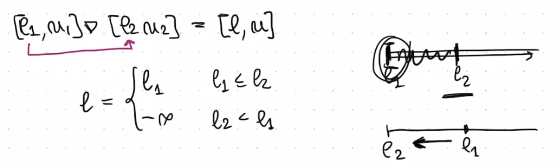 [ℓ₁, u₁] ∇ [ℓ₂ u₂] = [ℓ, u]
ℓ = { ℓ₁ ℓ₁ ≤ ℓ₂
-∞ ℓ₂ < ℓ₁
ℓ₁ ℓ₂
ℓ₂ ℓ₁